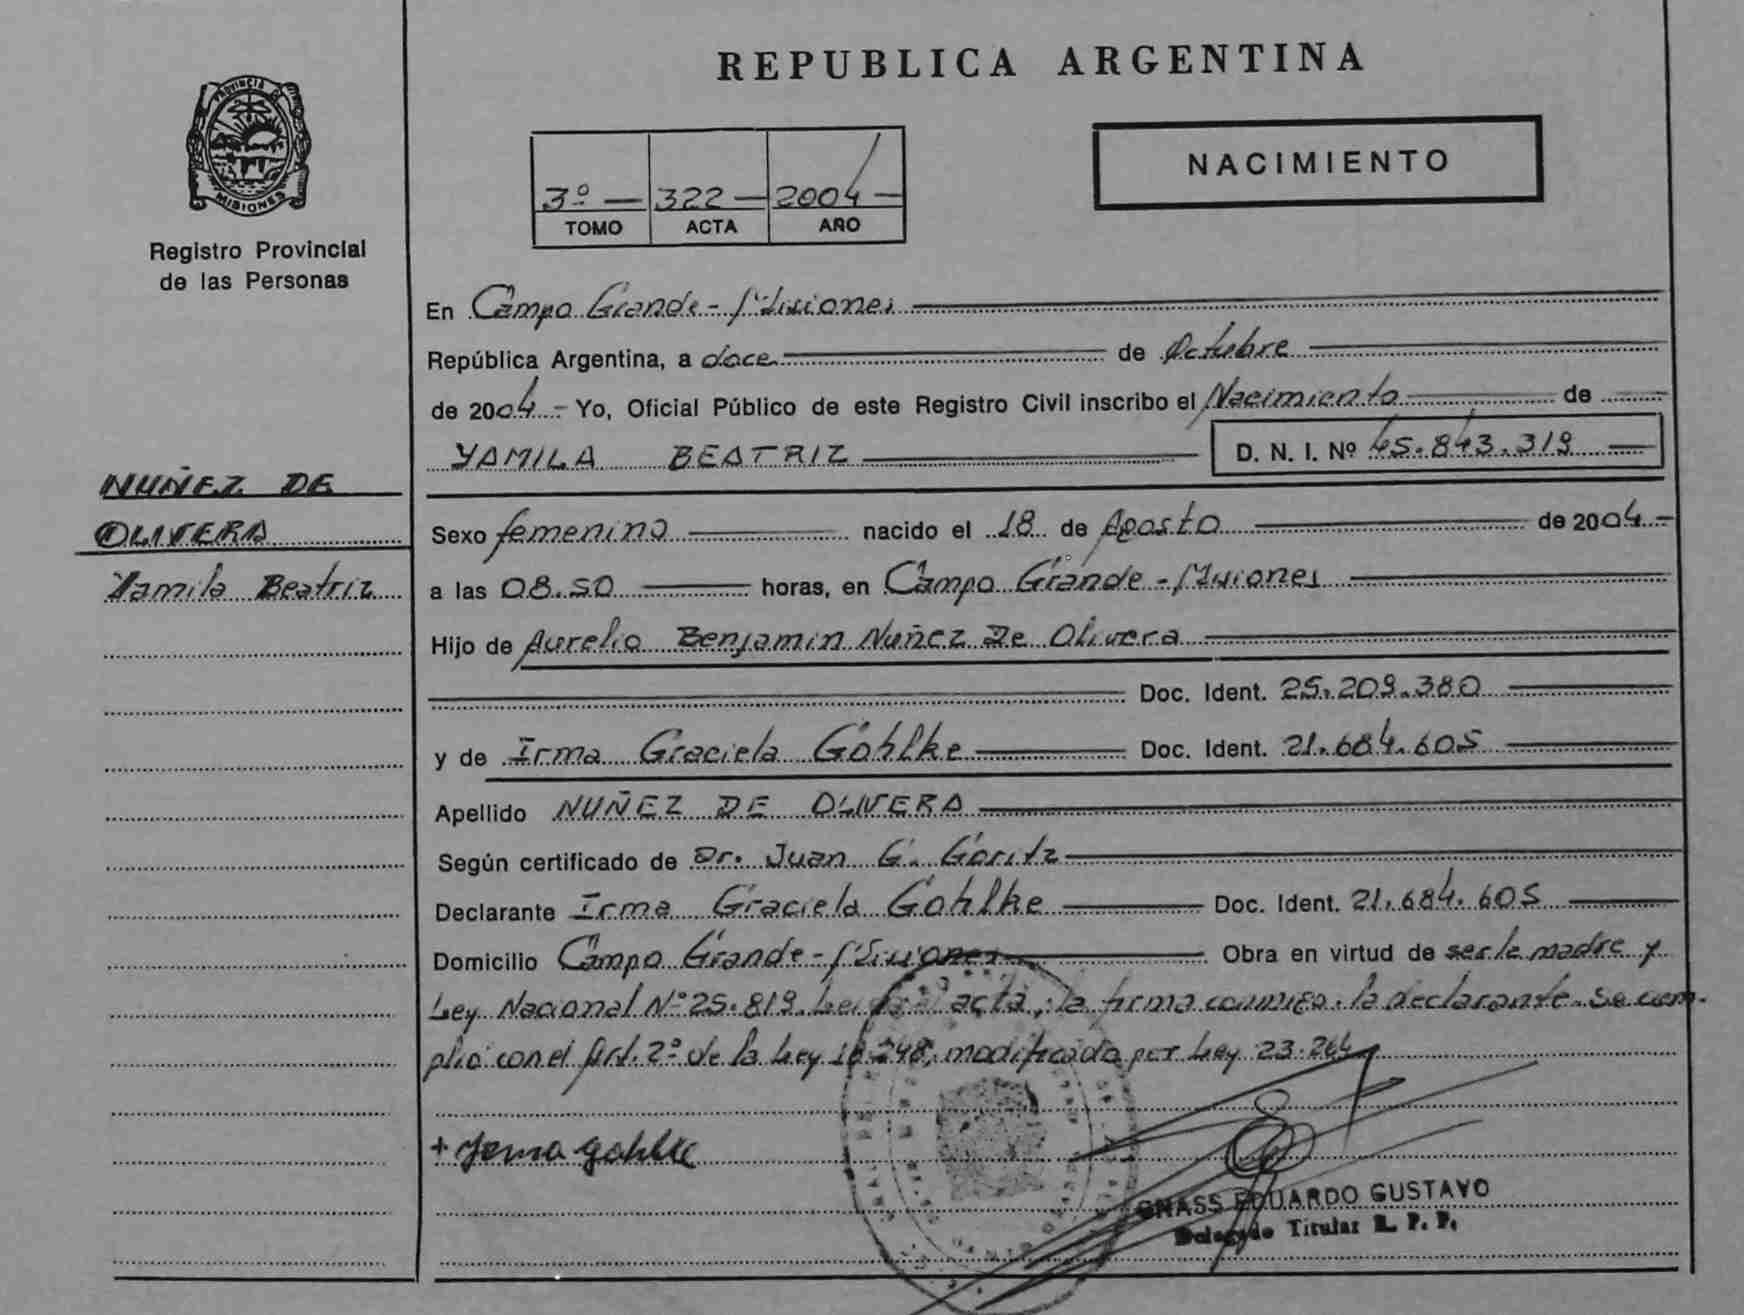 REPUBLICA ARGENTINA
PROVINCIA DE
MISIONES
Registro Provincial
de las Personas
3º — 322 — 2004 —
TOMO ACTA AÑO
NACIMIENTO
En Campo Grande - Misiones
República Argentina, a doce de Octubre
de 2004 - Yo, Oficial Público de este Registro Civil inscribo el Nacimiento de
YAMILA BEATRIZ D. N. I. Nº 45.843.319
NUÑEZ DE
OLIVERA
Yamila Beatriz
Sexo femenino nacido el 18 de Agosto de 2004 -
a las 08.50 horas, en Campo Grande - Misiones
Hijo de Aurelio Benjamin Nuñez De Olivera
Doc. Ident. 25.209.380
y de Irma Graciela Göhlke Doc. Ident. 21.684.605
Apellido NUÑEZ DE OLIVERA
Según certificado de Dr. Juan G. Goritz
Declarante Irma Graciela Göhlke Doc. Ident. 21.684.605
Domicilio Campo Grande - Misiones Obra en virtud de ser la madre y
Ley Nacional Nº 25.819. acta, la firma conmigo la declarante. Se cum-
plió con el Art. 2º de la Ley 18.248, modificado por Ley 23.264
+ Irma gohlke
GNASS EDUARDO GUSTAVO
Delegado Titular R. P. P.